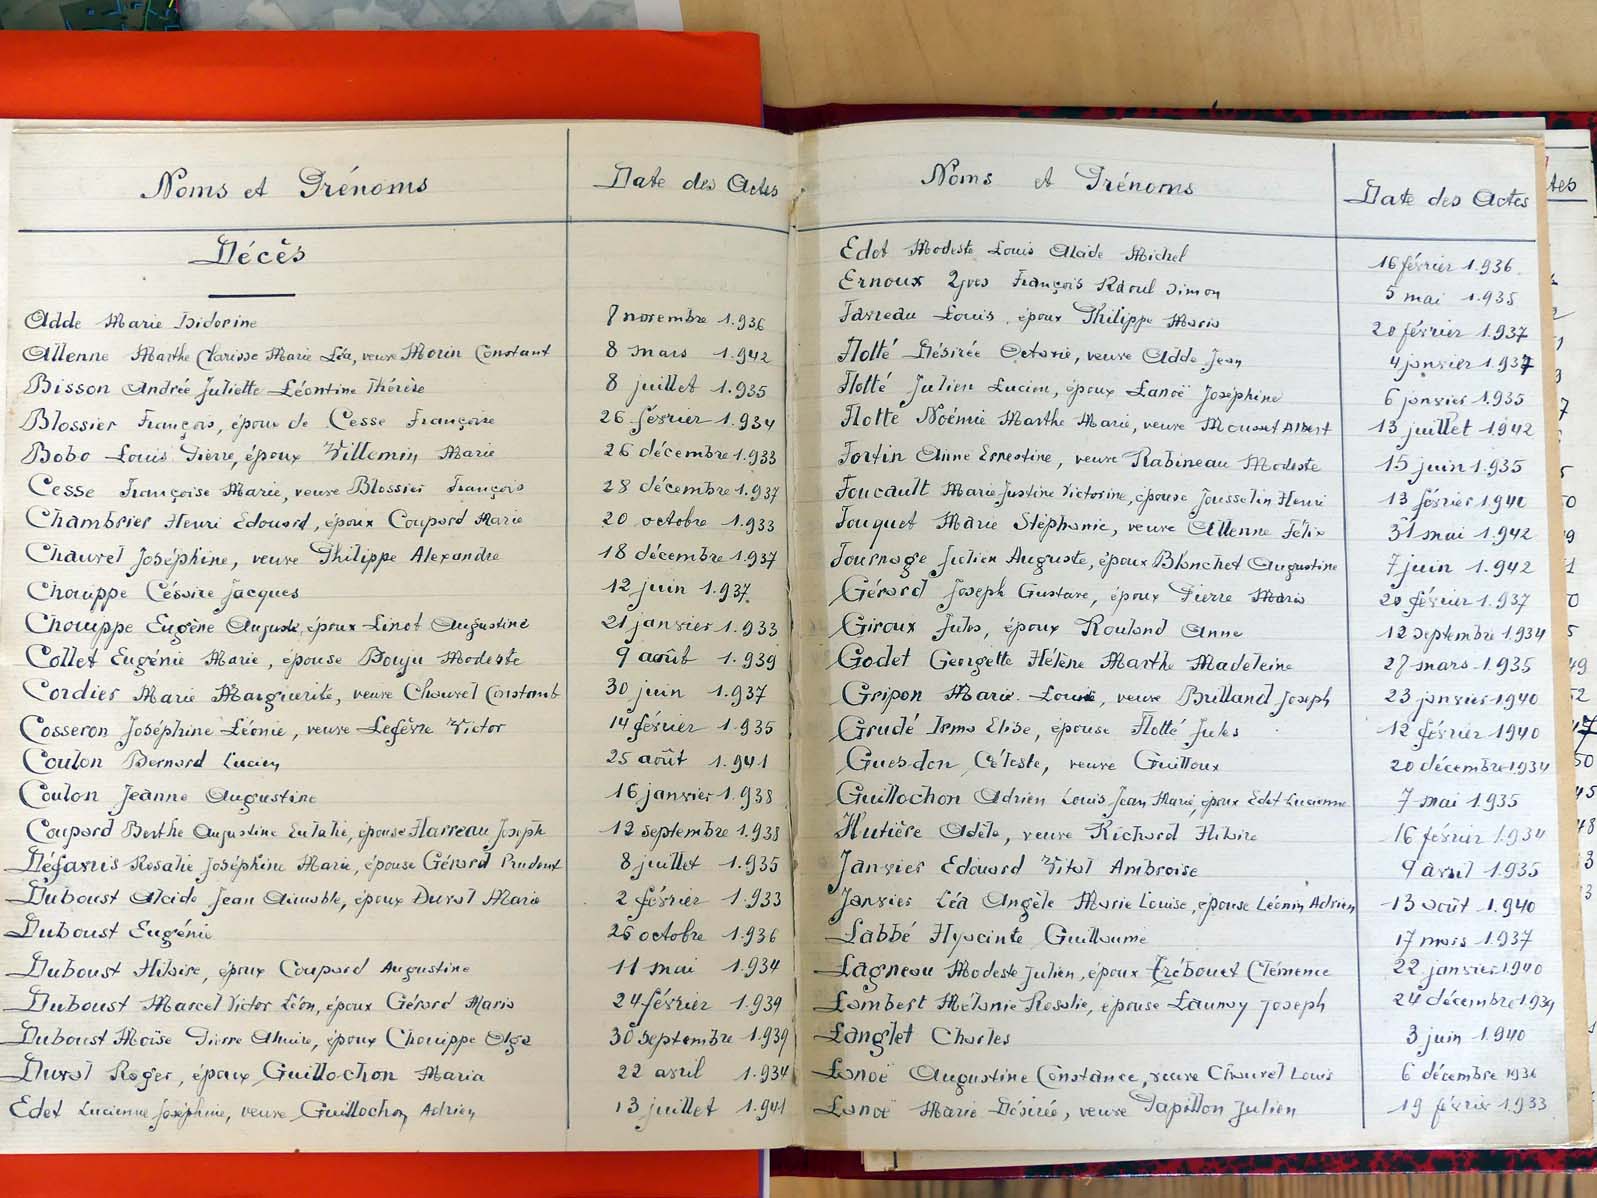 Noms et Prénoms Date des Actes
Décès
Adde Marie Isidorine 7 novembre 1.936
Allenne Marthe Clarisse Marie Léa, veuve Morin Constant 8 mars 1.942
Bisson Andrée Juliette Léontine Thérèse 8 juillet 1.935
Blossier François, époux de Cesse Françoise 26 février 1.934
Bobo Louis Pierre, époux Villemin Marie 26 décembre 1.933
Cesse Françoise Marie, veuve Blossier François 28 décembre 1.937
Chambrier Henri Edouard, époux Coupard Marie 20 octobre 1.933
Chauvel Joséphine, veuve Philippe Alexandre 18 décembre 1.937
Chouippe Césaire Jacques 12 juin 1.937.
Chouippe Eugène Auguste, époux Linot Augustine 21 janvier 1.933
Collet Eugénie Marie, épouse Bouju Modeste 9 août 1.939
Cordier Marie Marguerite, veuve Chauvel Constant 30 juin 1.937
Cosseron Joséphine Léonie, veuve Lefèvre Victor 14 février 1.935
Coulon Bernard Lucien 25 août 1.941
Coulon Jeanne Augustine 16 janvier 1.938
Coupard Berthe Augustine Eulalie, épouse Harreau Joseph 12 septembre 1.938
Défarüs Rosalie Joséphine Marie, épouse Gérard Prudent 8 juillet 1.935
Duboust Alcide Jean Aimable, époux Duval Marie 2 février 1.933
Duboust Eugénie 26 octobre 1.936
Duboust Hilaire, époux Coupard Augustine 11 mai 1.934
Duboust Marcel Victor Léon, époux Gérard Maria 24 février 1.939
Duboust Moïse Pierre Almire, époux Chouippe Olga 30 septembre 1.939
Duval Roger, époux Guillochon Maria 22 avril 1.934
Edet Lucienne Joséphine, veuve Guillochon Adrien 13 juillet 1.941
Noms et Prénoms Date des Actes
Edet Modeste Louis Alcide Michel 16 février 1.936.
Ernoux Yves François Raoul Simon 5 mai 1.935
Farreau Louis, époux Philippe Maria 20 février 1.937
Flotté Désirée Octavie, veuve Adde Jean 4 janvier 1.937
Flotté Julien Lucien, époux Lanoë Joséphine 6 janvier 1.935
Flotté Noémie Marthe Marie, veuve Mousset Albert 13 juillet 1.942
Fortin Anne Ernestine, veuve Rabineau Modeste 15 juin 1.935
Foucault Marie Justine Victorine, épouse Jousselin Henri 13 février 1.940
Fouquet Marie Stéphanie, veuve Allenne Félix 31 mai 1.942
Fournage Julien Auguste, époux Blanchet Augustine 7 juin 1.942
Gérard Joseph Gustave, époux Pierre Maria 20 février 1.937
Giroux Jules, époux Rouland Anne 12 septembre 1.934
Godet Georgette Hélène Marthe Madeleine 27 mars 1.935
Gripon Marie Louise, veuve Brilland Joseph 23 janvier 1.940
Grudé Irma Elise, épouse Flotté Jules 12 février 1940
Guesdon Céleste, veuve Guilloux 20 décembre 1.934
Guillochon Adrien Louis Jean Marie époux Edet Lucienne 7 mai 1.935
Hutière Adèle, veuve Richard Hilaire 16 février 1.934
Janvier Edouard Vital Ambroise 9 avril 1.935
Janvier Léa Angèle Marie Louise, épouse Léonin Adrien 13 août 1.940
Labbé Hyacinte Guillaume 17 mars 1.937
Lagneau Modeste Julien, époux Trébouet Clémence 22 janvier 1.940
Lambert Mélanie Rosalie, épouse Launay Joseph 24 décembre 1.939
Langlet Charles 3 juin 1.940
Lanoë Augustine Constance, veuve Chauvel Louis 6 décembre 1936
Lanoë Marie Désirée, veuve Papillon Julien 19 février 1.933